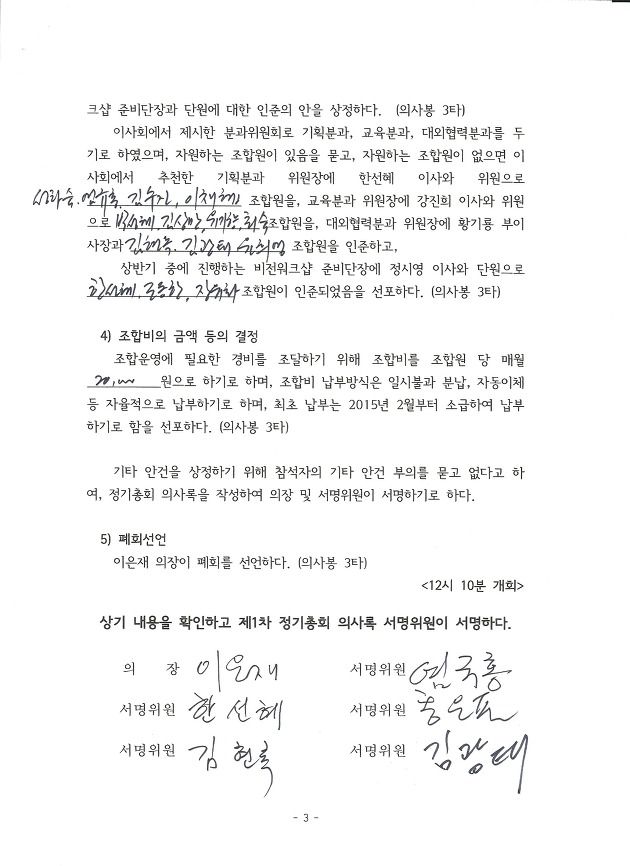 크샵 준비단장과 단원에 대한 인준의 안을 상정하다. (의사봉 3타)
이사회에서 제시한 분과위원회로 기획분과, 교육분과, 대외협력분과를 두
기로 하였으며, 자원하는 조합원이 있음을 묻고, 자원하는 조합원이 없으면 이
사회에서 추천한 기획분과 위원장에 한선혜 이사와 위원으로
김수진, 이채혜 조합원을, 교육분과 위원장에 강진희 이사와 위원
으로 조합원을, 대외협력분과 위원장에 황기룡 부이
사장과 김현록, 김광태 조합원을 인준하고,
상반기 중에 진행하는 비전워크샵 준비단장에 정시영 이사와 단원으로
한선혜, 조합원이 인준되었음을 선포하다. (의사봉 3타)
4) 조합비의 금액 등의 결정
조합운영에 필요한 경비를 조달하기 위해 조합비를 조합원 당 매월
원으로 하기로 하며, 조합비 납부방식은 일시불과 분납, 자동이체
등 자율적으로 납부하기로 하며, 최초 납부는 2015년 2월부터 소급하여 납부
하기로 함을 선포하다. (의사봉 3타)
기타 안건을 상정하기 위해 참석자의 기타 안건 부의를 묻고 없다고 하
여, 정기총회 의사록을 작성하여 의장 및 서명위원이 서명하기로 하다.
5) 폐회선언
이은재 의장이 폐회를 선언하다. (의사봉 3타)
<12시 10분 개회>
상기 내용을 확인하고 제1차 정기총회 의사록 서명위원이 서명하다.
의 장 이은재 서명위원 엄국홍
서명위원 한선혜 서명위원
서명위원 김현록 서명위원 김광태
- 3 -